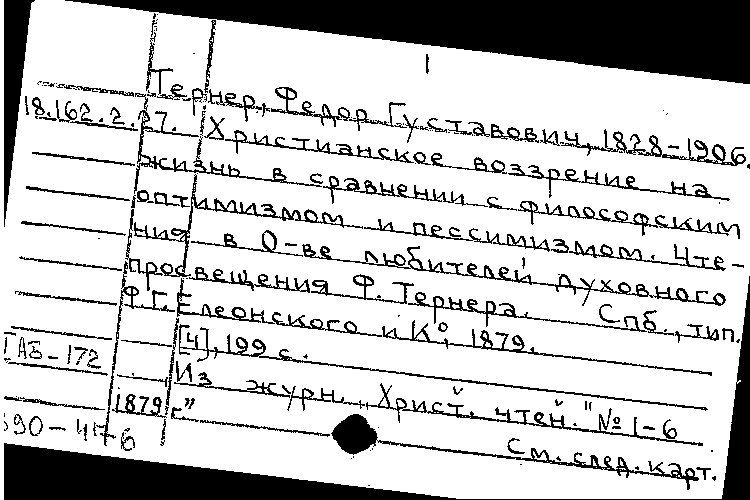 Тернер, Федор Густавович, 1828-1906.
18.162.2.27. Христианское воззрение на
жизнь в сравнении с философским
оптимизмом и пессимизмом. Чте-
ния в О-ве любителей духовного
просвещения Ф. Тернера. Спб., тип.
Ф.Г. Елеонского и К°, 1879.
[4], 199 с.
ГАБ-172
Из журн. „Христ. чтен." № 1-6
1879 г."
См. след. карт.